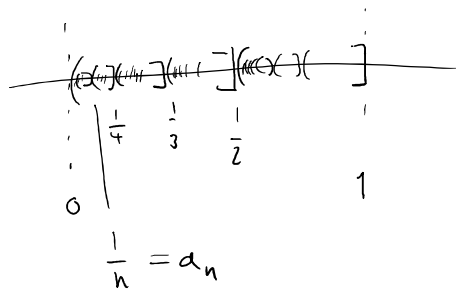 ( ( ) ( ) ( ] ( ] ( ( ) ( ) ( ]
1/4 1/3 1/2
0 1
1/n = a_n